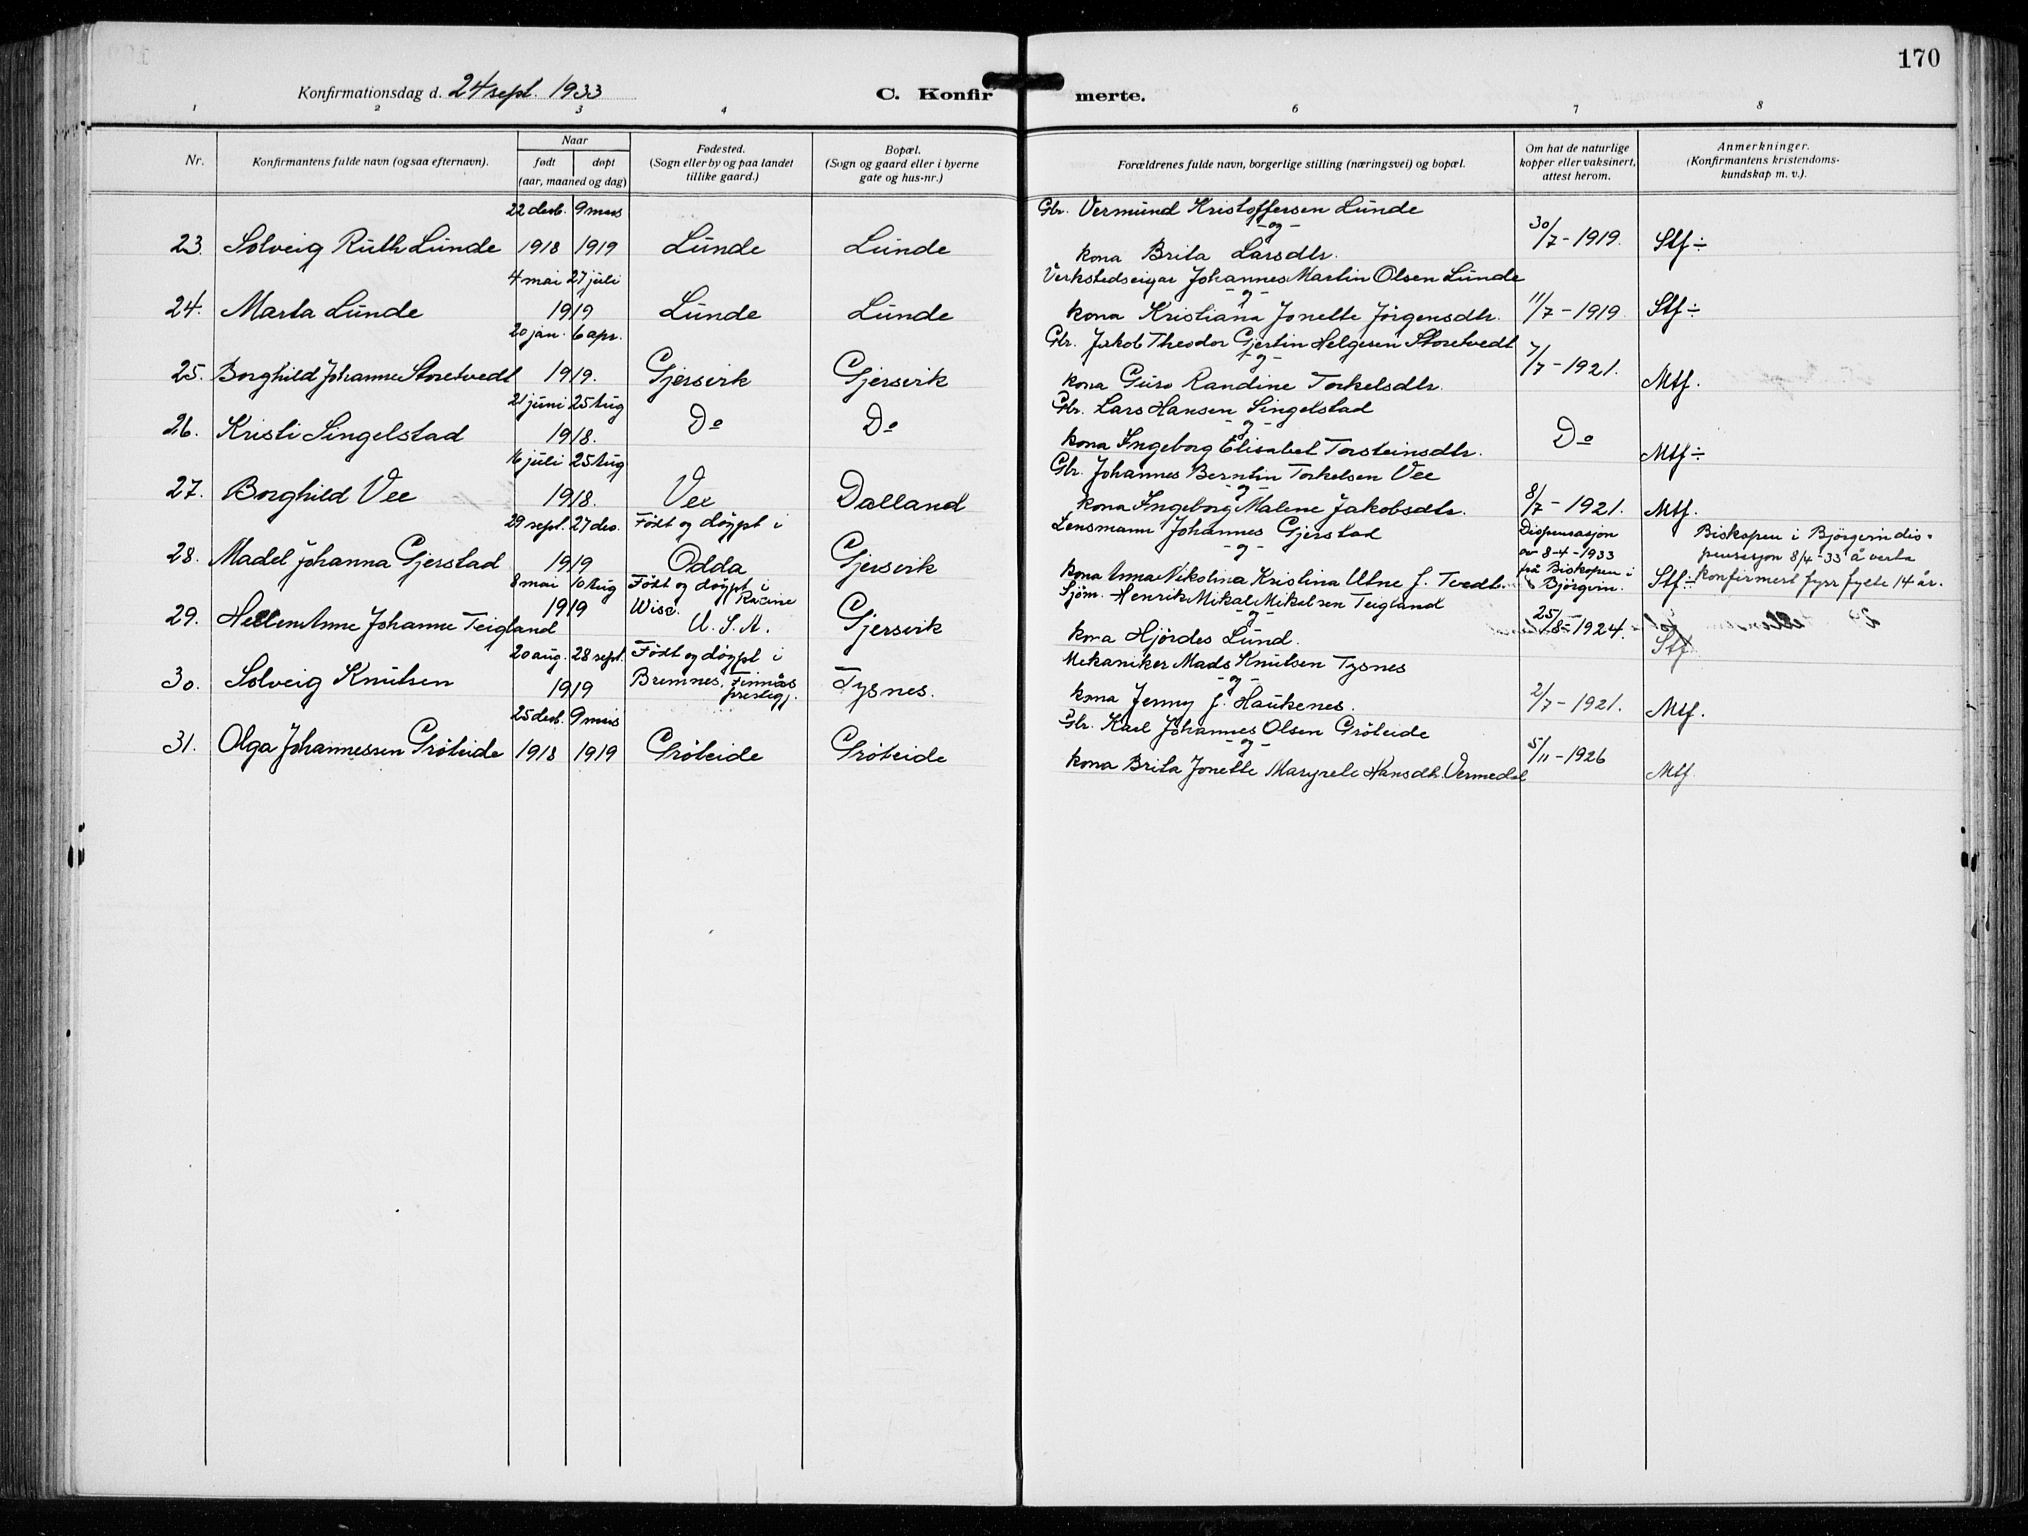 170
Konfirmationsdag d. 24 sept. 1933
C. Konfirmerte.
1 2 3 4 6 7 8
Nr.
Konfirmantens fulde navn (ogsaa efternavn).
Naar
født døpt
(aar, maaned og dag)
Fødested.
(Sogn eller by og paa landet
tillike gaard.)
Bopæl.
(Sogn og gaard eller i byerne
gate og hus-nr.)
Forældrenes fulde navn, borgerlige stilling (næringsvei) og bopæl.
Om hat de naturlige
kopper eller vaksinert,
attest herom.
Anmerkninger.
(Konfirmantens kristendoms-
kundskap m. v.).
22 desb. 9 mars
Gbr. Vermund Kristoffersen Lunde
-og-
23. Solveig Ruth Lunde 1918 1919 Lunde Lunde
kona Brita Larsdtr. 30/7-1919. Stf÷
4 mai 27 juli
Verkstedseigar Johannes Martin Olsen Lunde
-og-
24. Marta Lunde 1919 Lunde Lunde
kona Kristiana Jonette Jörgensdtr. 11/7-1919. Stf÷
20 jan. 6 apr.
Gbr. Jakob Theodor Gjertin Helgesen Storetvedt
-og-
25. Borghild Johanne Storetvedt 1919. Gjersvik Gjersvik
kona Guro Randine Torkelsdtr. 7/7-1921. Mtf.
21 juni 25 Aug
Gbr. Lars Hansen Singelstad
-og-
26. Kristi Singelstad 1918. Do Do
kona Ingeborg Elisabet Torsteinsdtr. Do Mtf÷
16 juli 25 Aug
Gbr. Johannes Berntin Torkelsen Vee
-og-
27. Borghild Vee 1918. Vee Dalland
kona Ingeborg Malene Jakobsdtr. 8/7-1921. Mtf.
29 sept. 27 des. Födt og döypt i
Lensmann Johannes Gjerstad
-og-
28. Madel Johanna Gjerstad 1919 Odda Gjersvik
kona Anna Nikolina Kristina Utne f. Tvedt.
Dispensasjon
av 8-4-1933
frå Biskopen i
Björgvin.
Stf÷
Biskopen i Björgvin dis-
pensasjon 8/4-33 å verta
konfirmert fyrr fyllte 14 år.
8 mai 10 Aug Födt og döypt i
Sjöm. Henrik Mikal Mikalsen Teigland
-og-
29. Hellen Anne Johanne Teigland 1919 Wisc. Racine
U. S. A. Gjersvik
kona Hjördes Lund. 25/8-1924. Stf
20 aug. 28 sept. Födt og döypt i
Mekaniker Mads Knutsen Tysnes
-og-
30. Solveig Knutsen 1919 Bremnes, Finnås
prestegj. Tysnes.
kona Jenny f. Haukenes. 2/7-1921. Mtf.
25 desb. 9 mars
Gbr. Karl Johannes Olsen Gröteide
-og-
31. Olga Johannessen Gröteide 1918 1919 Gröteide Gröteide
kona Brita Jonette Margrete Hansdtr. Vermedal 5/11-1926 Mtf.